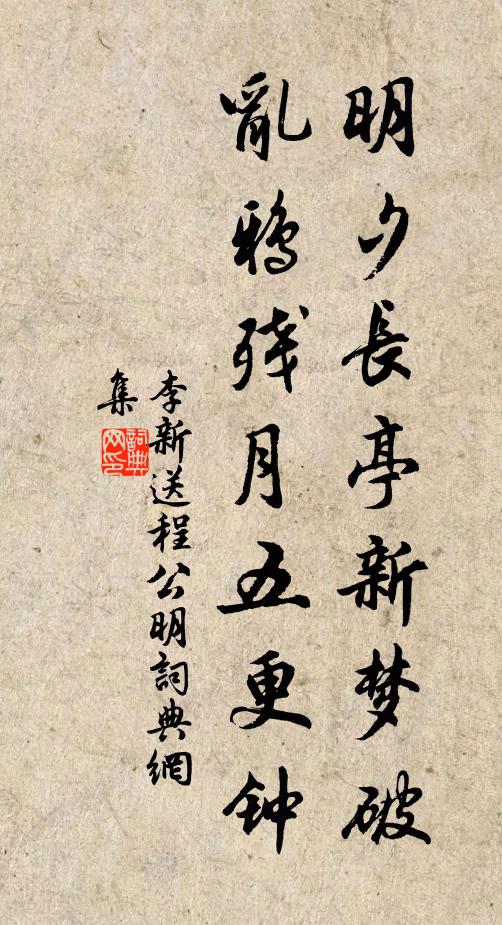 明夕長亭新梦破
亂鸦残月五更钟
李新送程公明詞典網
集
詞典
网印